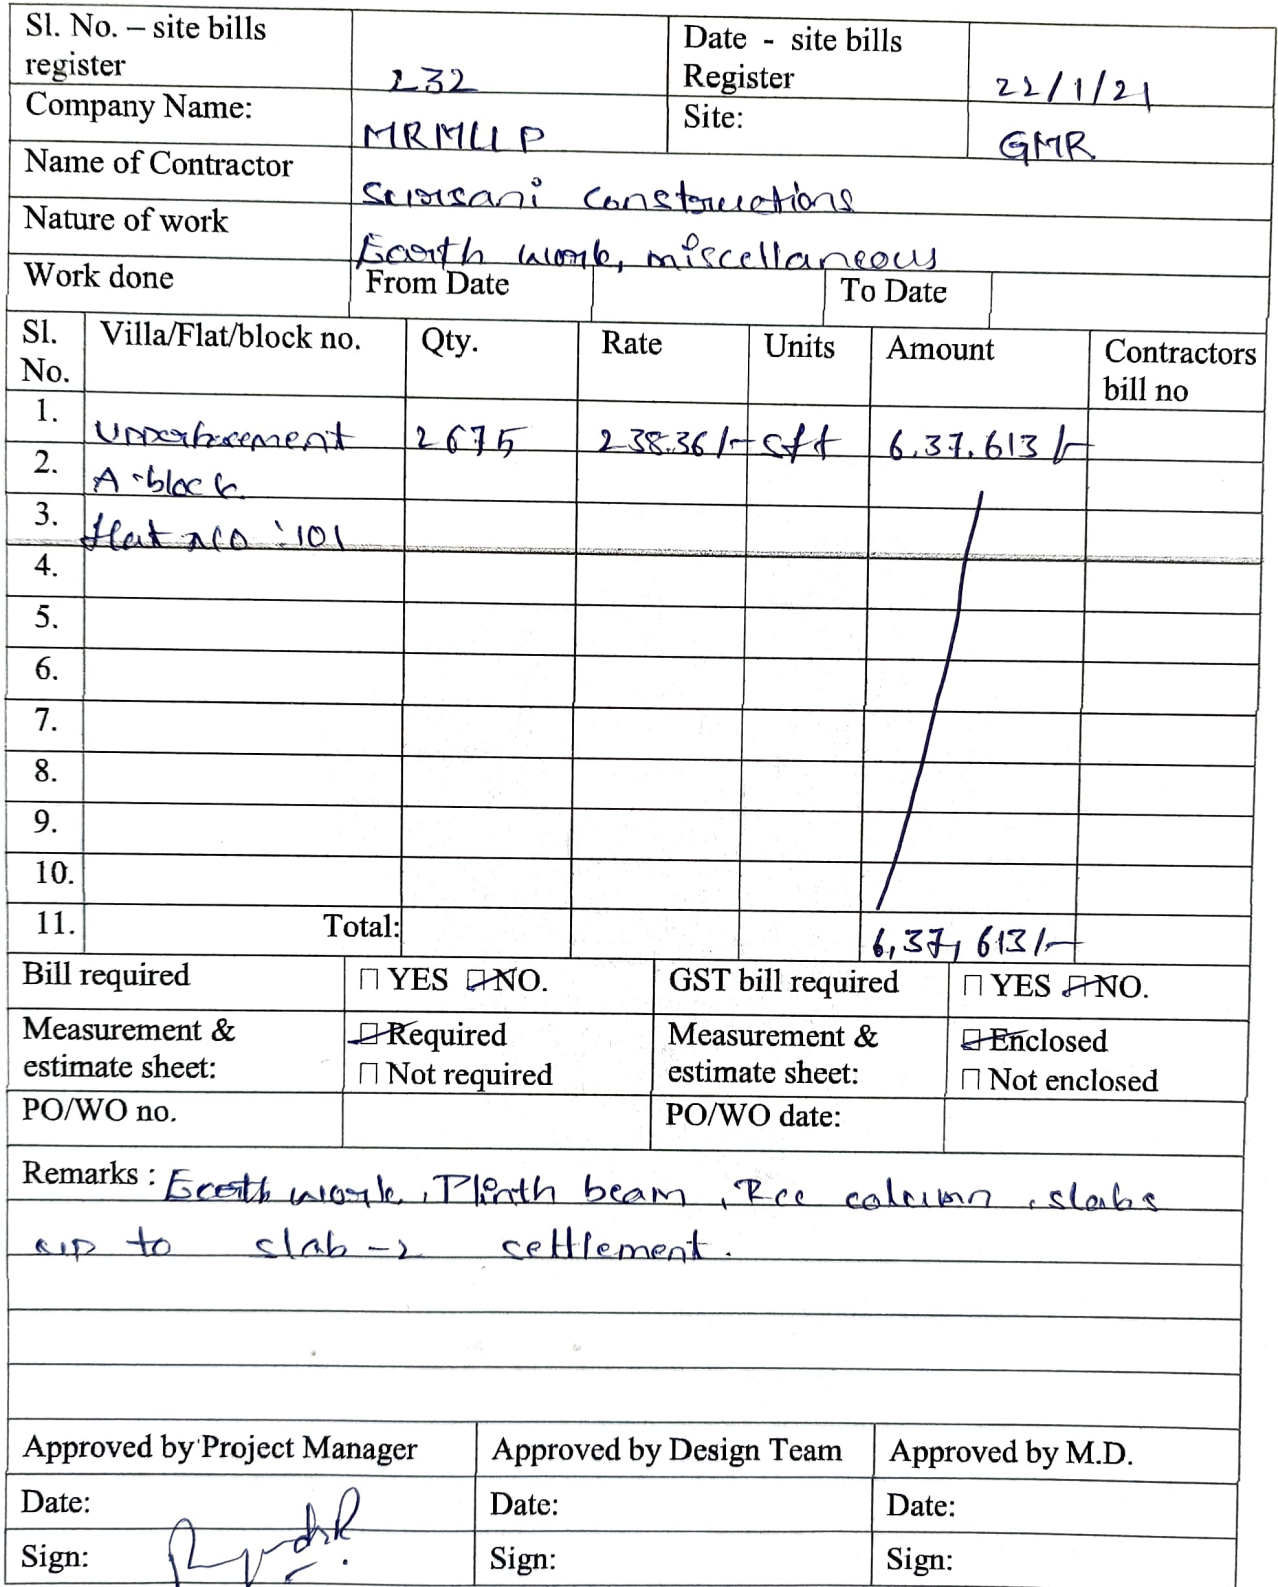 Sl. No. – site bills register 232 Date - site bills Register 22/1/21
Company Name: MRMLLP Site: GMR
Name of Contractor constructions
Nature of work Earth work, miscellaneous
Work done From Date To Date
Sl. No. Villa/Flat/block no. Qty. Rate Units Amount Contractors bill no
1. Upperbasement 2675 238.36/- sft 6,37,613/-
2. A-block
3. flat no :101
4.
5.
6.
7.
8.
9.
10.
11. Total: 6,37,613/-
Bill required YES NO. GST bill required YES NO.
Measurement & estimate sheet: Required Measurement & estimate sheet: Enclosed
Not required Not enclosed
PO/WO no. PO/WO date:
Remarks : Earth work, Plinth beam, Rcc column, slabs
up to slab-2 settlement.
Approved by Project Manager Approved by Design Team Approved by M.D.
Date: Date: Date:
Sign: Sign: Sign: